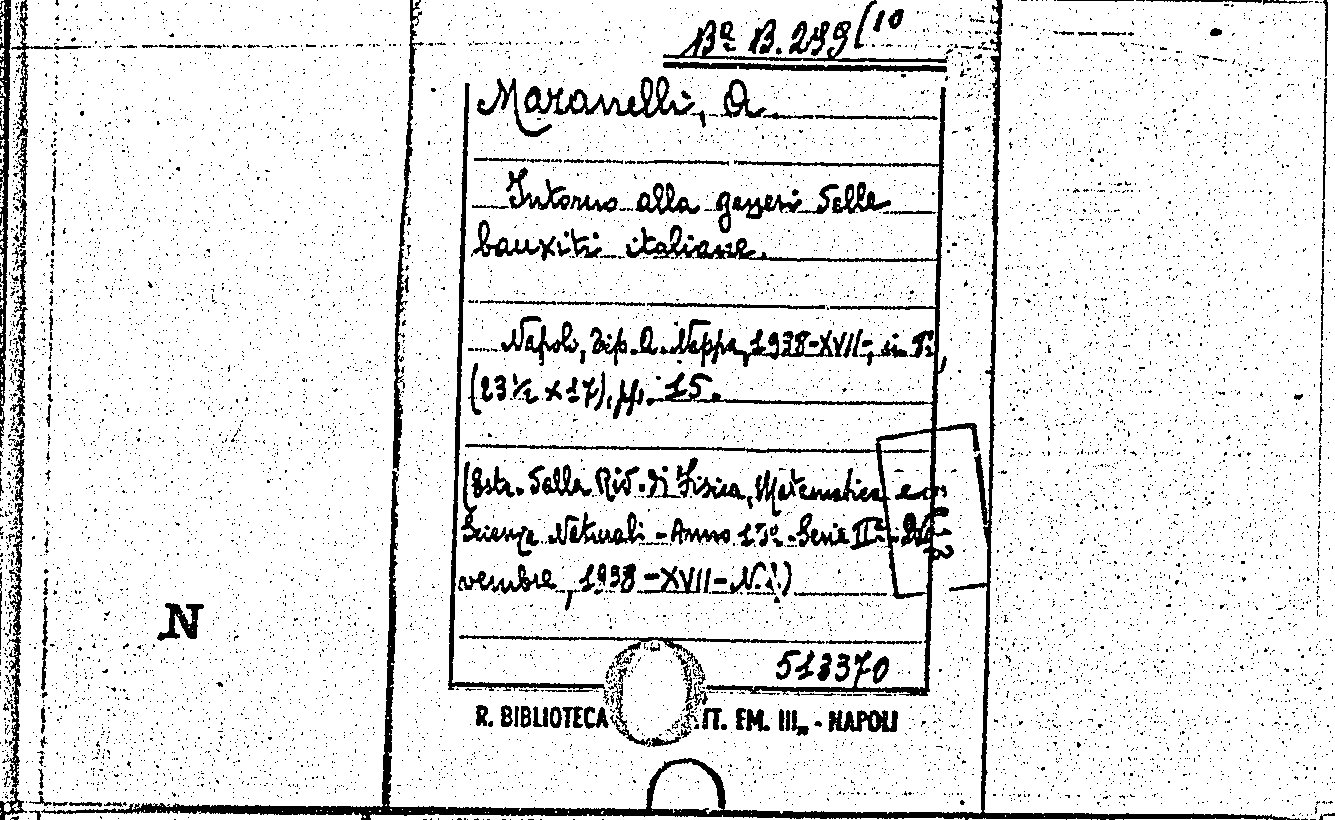 Bª B. 299/10
Maranelli, A.
Intorno alla genesi delle
bauxiti italiane.
Napoli, Tip. A. Nappa, 1938-XVII-, in
(23½ x 17), pp. 15.
(Estr. dalla Riv. di Fisica, Matematica e
Scienze Naturali - Anno 13º - Serie IIª - No
vembre, 1938 - XVII - N. 1.)
N
513370
R. BIBLIOTECA IT. EM. III„ - NAPOLI